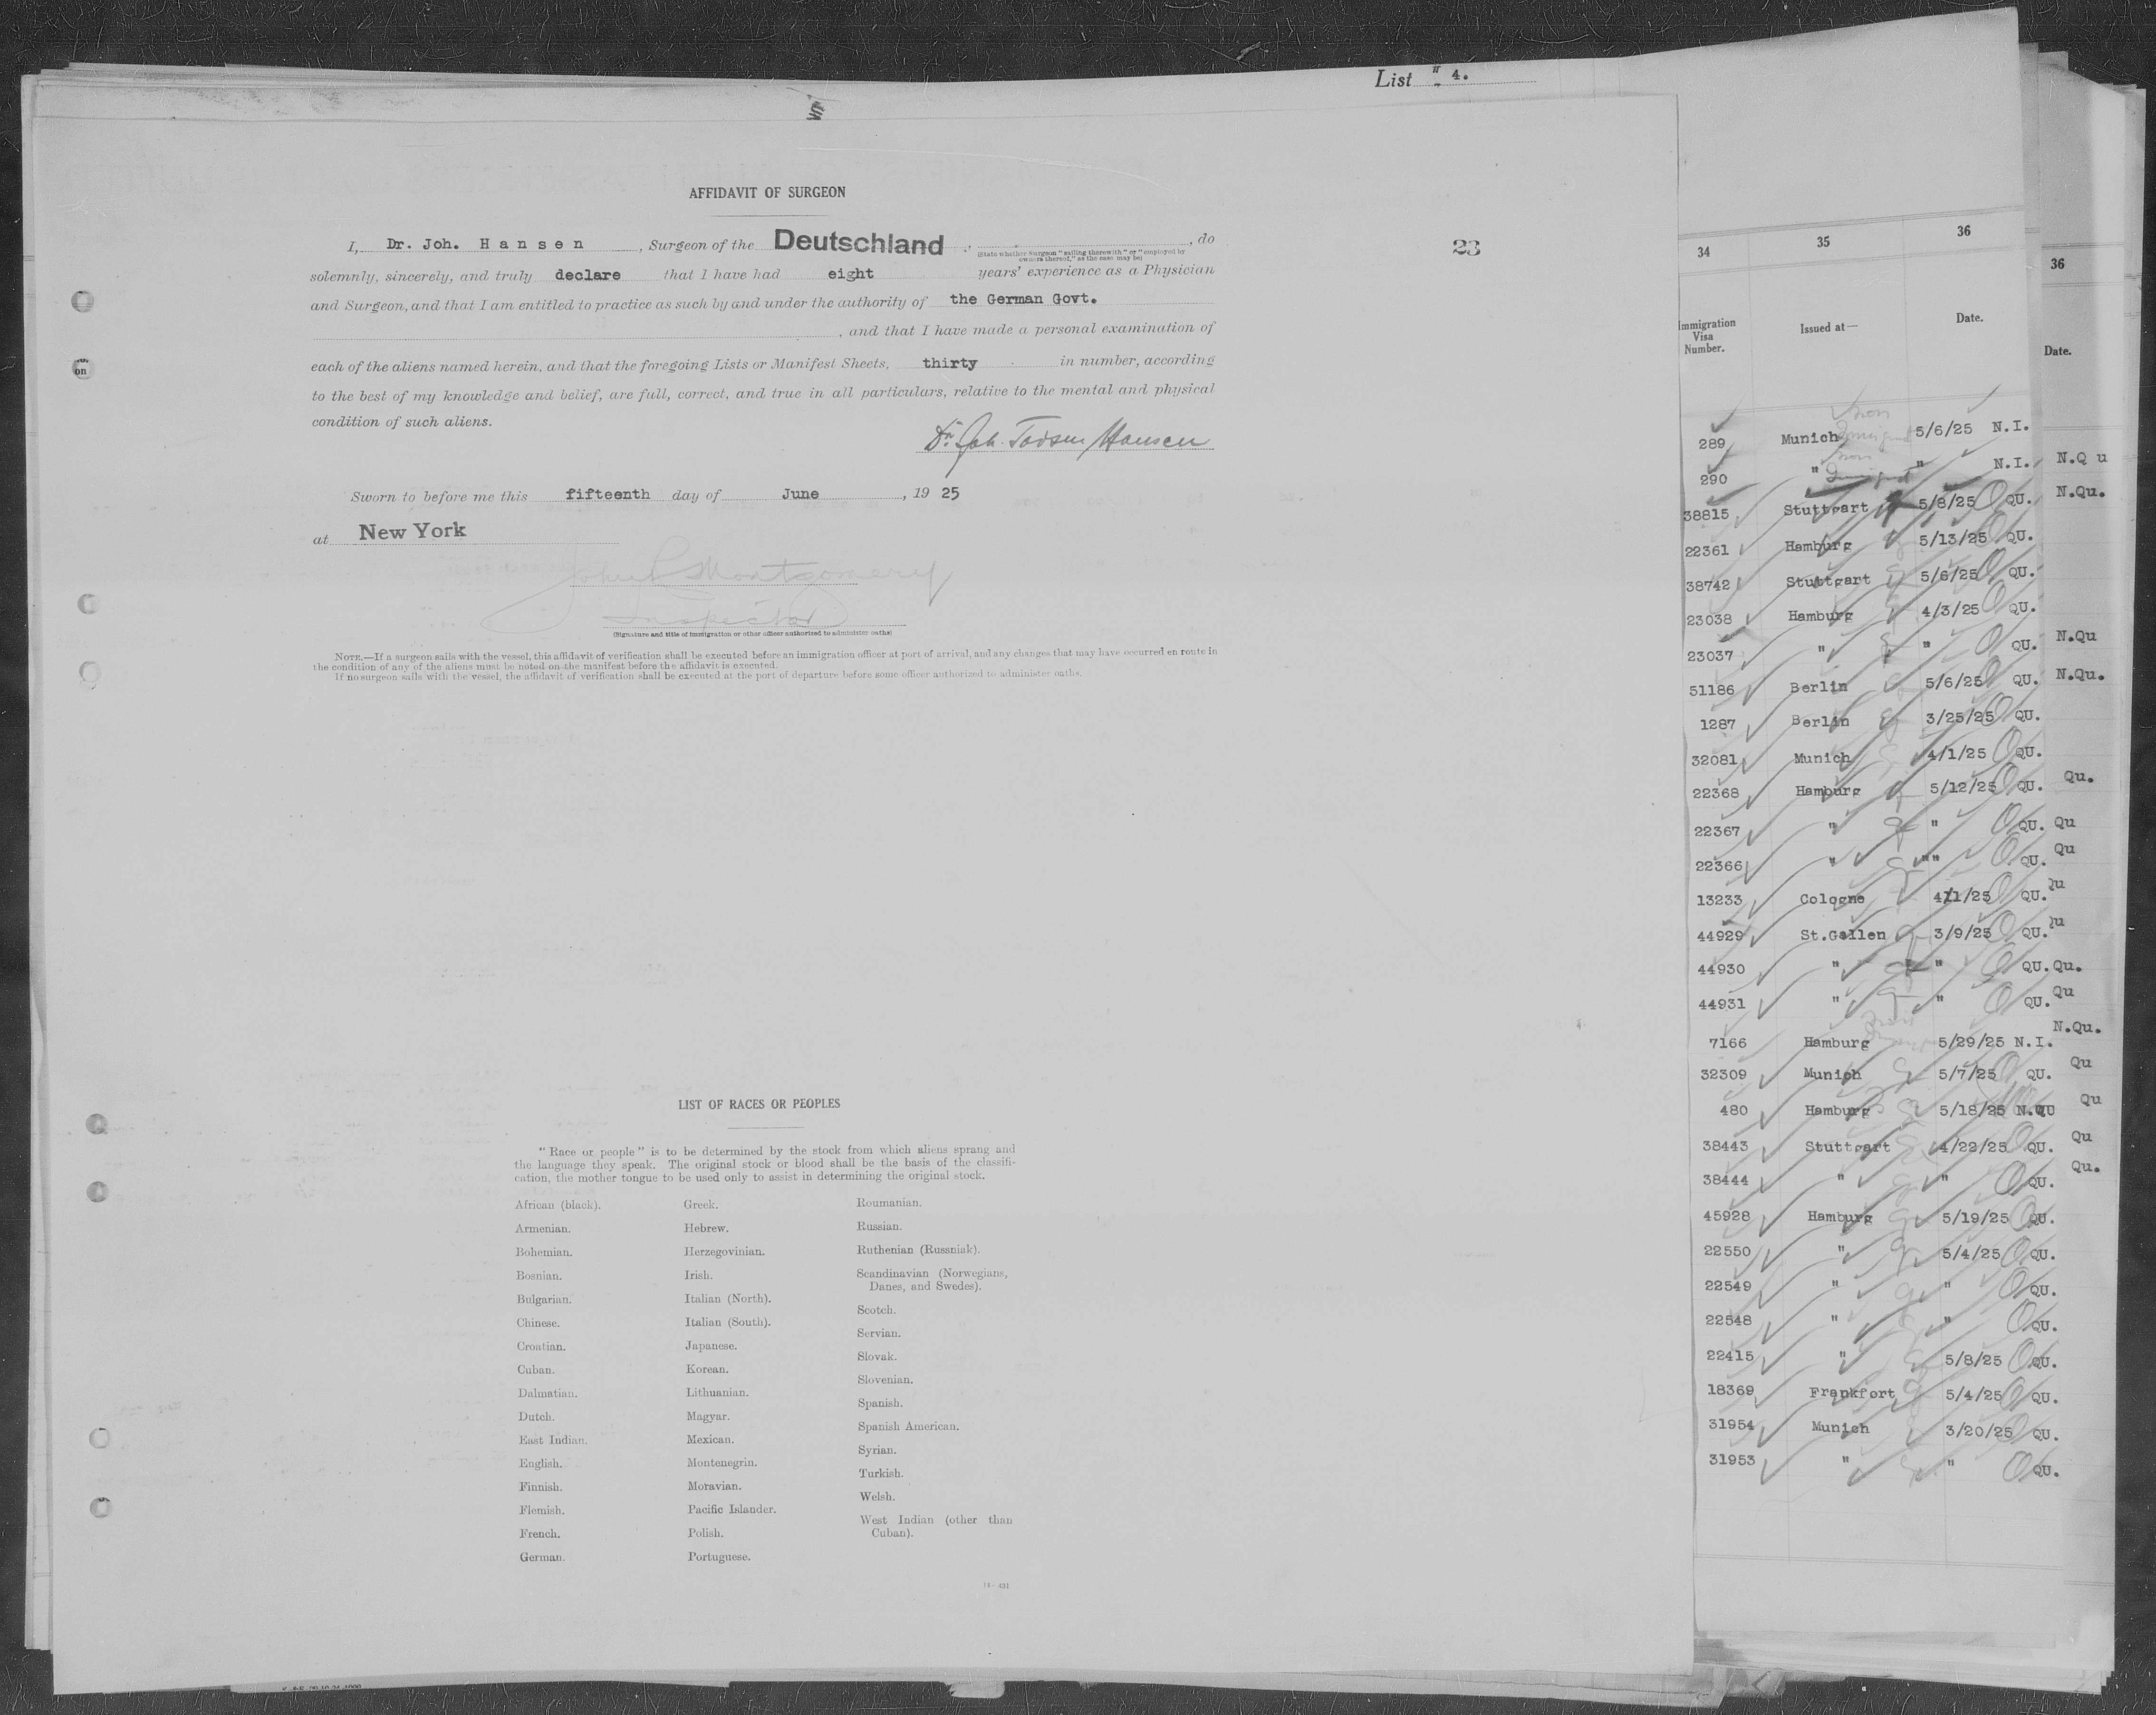 List " 4.
AFFIDAVIT OF SURGEON
I, Dr. Joh. Hansen, Surgeon of the Deutschland, , do
(State whether Surgeon "sailing therewith" or "employed by
owners thereof," as the case may be)
solemnly, sincerely, and truly declare that I have had eight years' experience as a Physician
and Surgeon, and that I am entitled to practice as such by and under the authority of the German Govt.
, and that I have made a personal examination of
each of the aliens named herein, and that the foregoing Lists or Manifest Sheets, thirty in number, according
to the best of my knowledge and belief, are full, correct, and true in all particulars, relative to the mental and physical
condition of such aliens.
Dr. Joh. Hansen
Sworn to before me this fifteenth day of June, 19 25
at New York
Montgomery
Inspector
(Signature and title of immigration or other officer authorized to administer oaths)
NOTE.—If a surgeon sails with the vessel, this affidavit of verification shall be executed before an immigration officer at port of arrival, and any changes that may have occurred en route in
the condition of any of the aliens must be noted on the manifest before the affidavit is executed.
If no surgeon sails with the vessel, the affidavit of verification shall be executed at the port of departure before some officer authorized to administer oaths.
23
on
LIST OF RACES OR PEOPLES
"Race or people" is to be determined by the stock from which aliens sprang and
the language they speak. The original stock or blood shall be the basis of the classifi-
cation, the mother tongue to be used only to assist in determining the original stock.
African (black).
Armenian.
Bohemian.
Bosnian.
Bulgarian.
Chinese.
Croatian.
Cuban.
Dalmatian.
Dutch.
East Indian.
English.
Finnish.
Flemish.
French.
German.
Greek.
Hebrew.
Herzegovinian.
Irish.
Italian (North).
Italian (South).
Japanese.
Korean.
Lithuanian.
Magyar.
Mexican.
Montenegrin.
Moravian.
Pacific Islander.
Polish.
Portuguese.
Roumanian.
Russian.
Ruthenian (Russniak).
Scandinavian (Norwegians,
Danes, and Swedes).
Scotch.
Servian.
Slovak.
Slovenian.
Spanish.
Spanish American.
Syrian.
Turkish.
Welsh.
West Indian (other than
Cuban).
34 35 36
Immigration
Visa
Number.
Issued at—
Date.
289 Munich 5/6/25 N.I.
290 " " N.I.
38815 Stuttgart 5/8/25 QU.
22361 Hamburg 5/13/25 QU.
38742 Stuttgart 5/6/25 QU.
23038 Hamburg 4/3/25 QU.
23037 " " QU.
51186 Berlin 5/6/25 QU.
1287 Berlin 3/25/25 QU.
32081 Munich 4/1/25 QU.
22368 Hamburg 5/12/25 QU.
22367 " " QU.
22366 " "" QU.
13233 Cologne 4/1/25 QU.
44929 St.Gallen 3/9/25 QU.
44930 " " QU.
44931 " " QU.
7166 Hamburg 5/29/25 N.I.
32309 Munich 5/7/25 QU.
480 Hamburg 5/18/25 N.QU
38443 Stuttgart 4/22/25 QU.
38444 " " QU.
45928 Hamburg 5/19/25 QU.
22550 " 5/4/25 QU.
22549 " " QU.
22548 " " QU.
22415 " 5/8/25 QU.
18369 Frankfort 5/4/25 QU.
31954 Munich 3/20/25 QU.
31953 " " QU.
36
Date.
N.Q u
N.Qu.
N.Qu
N.Qu.
Qu.
Qu
Qu
Qu
Qu
Qu.
Qu
N.Qu.
Qu
Qu
Qu
Qu.